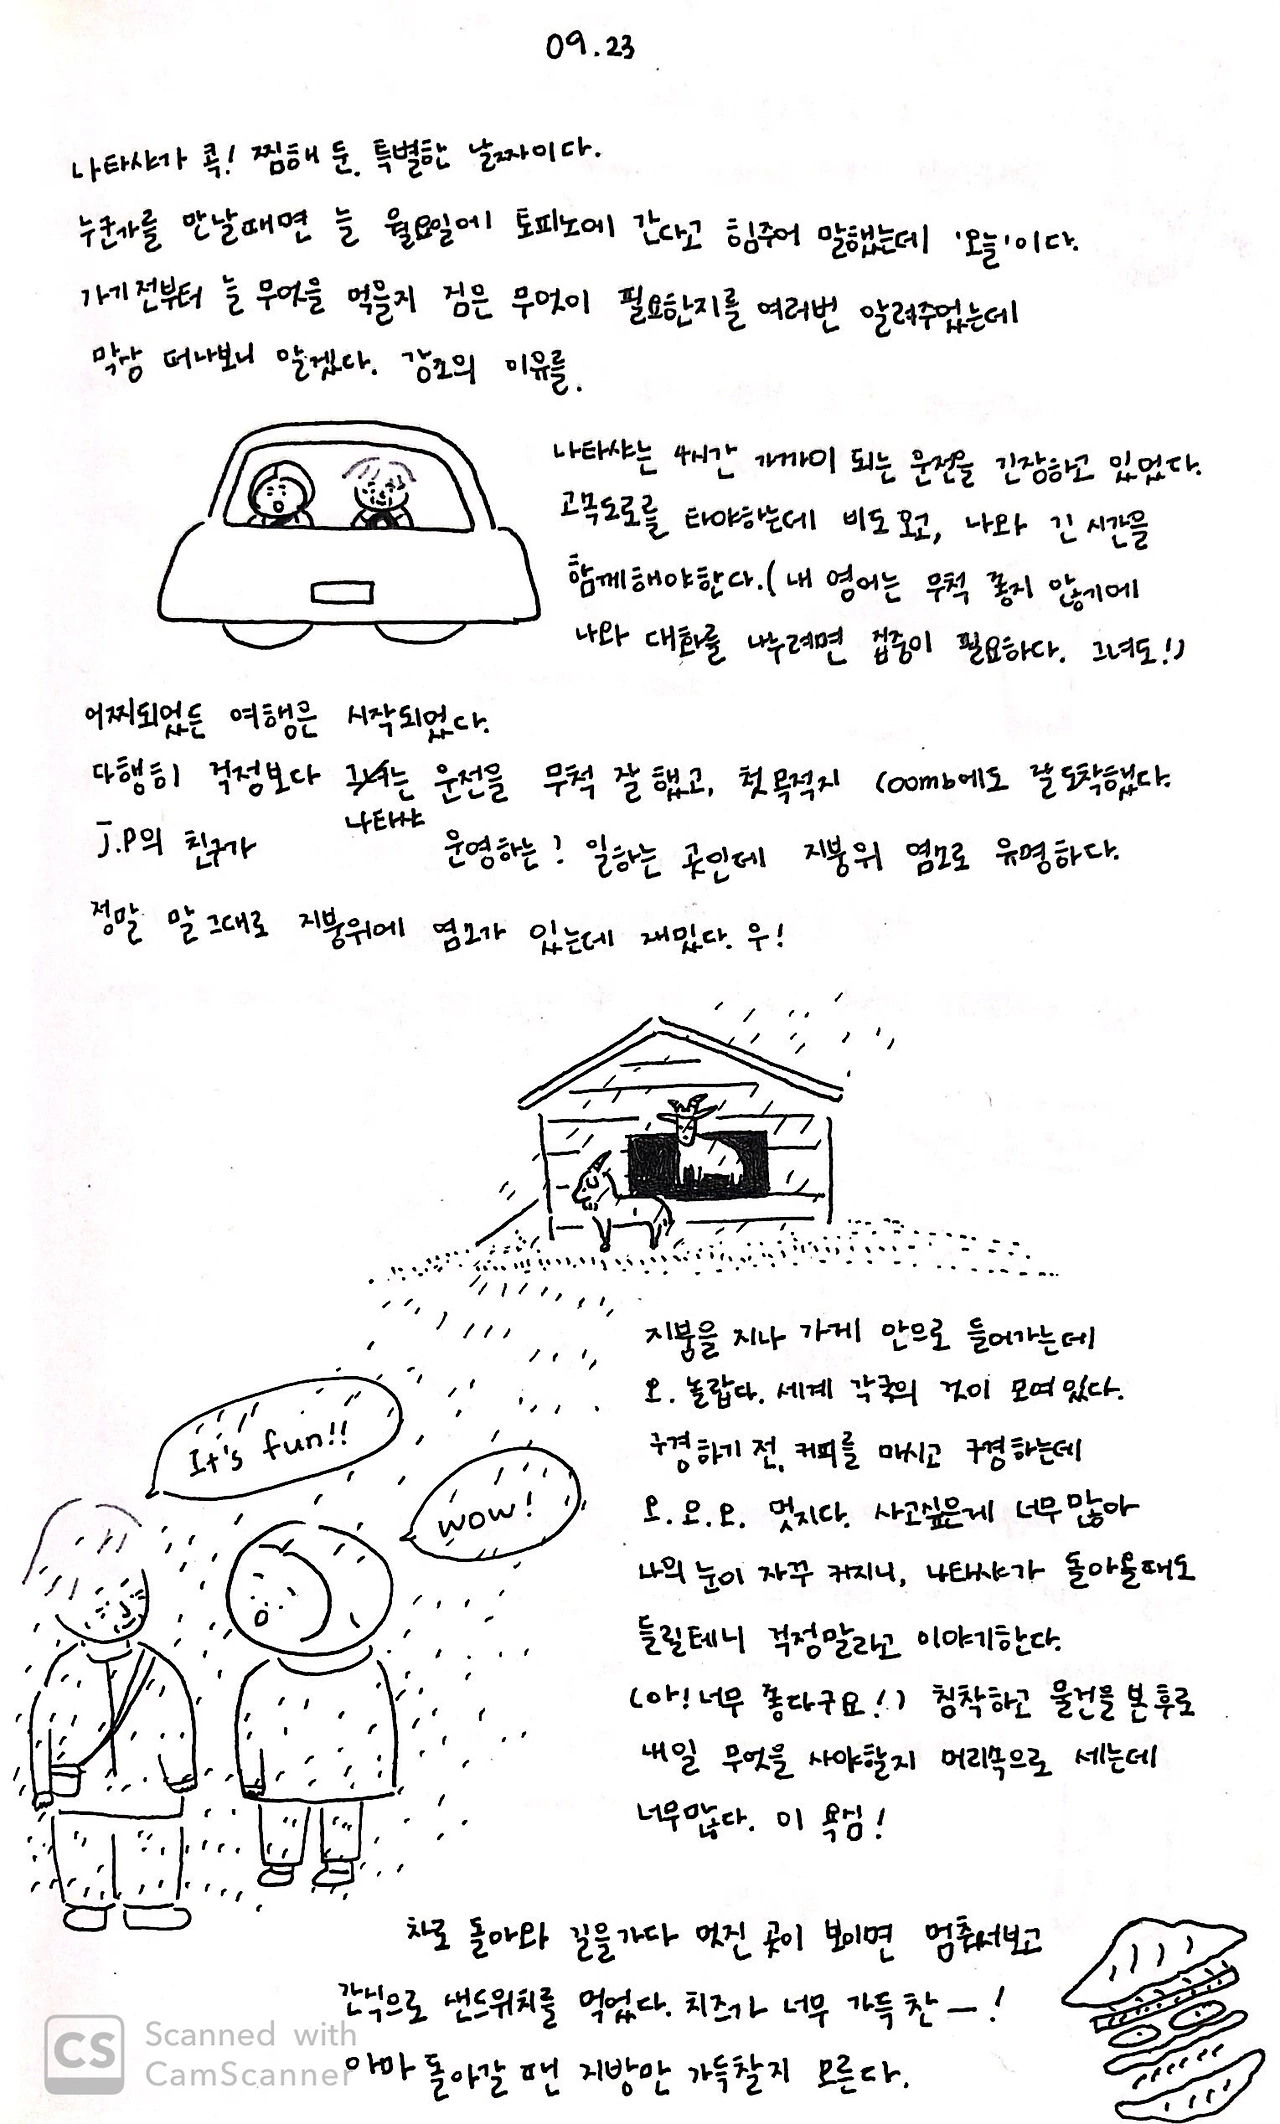 09.23
나타샤가 콕! 찜해 둔, 특별한 날짜이다.
누군가를 만날때면 늘 월요일에 토피노에 간다고 힘주어 말했는데 '오늘'이다.
가기전부터 늘 무엇을 먹을지 짐은 무엇이 필요한지를 여러번 알려주었는데
막상 떠나보니 알겠다. 강조의 이유를.
나타샤는 4시간 가까이 되는 운전을 긴장하고 있었다.
고속도로를 타야하는데 비도 오고, 나와 긴 시간을
함께해야한다.(내 영어는 무척 좋지 않기에
나와 대화를 나누려면 집중이 필요하다. 그녀도!)
어찌되었든 여행은 시작되었다.
다행히 걱정보다 그녀는 운전을 무척 잘 했고, 첫 목적지 Coomb에도 잘 도착했다.
나타샤
J.P의 친구가 운영하는? 일하는 곳인데 지붕위 염소로 유명하다.
정말 말 그대로 지붕위에 염소가 있는데 재밌다. 우!
지붕을 지나 가게 안으로 들어가는데
오. 놀랍다. 세계 각국의 것이 모여있다.
구경하기 전, 커피를 마시고 구경하는데
오.오.오. 멋지다. 사고싶은게 너무많아
나의 눈이 자꾸 커지니, 나타샤가 돌아올때도
들릴테니 걱정말라고 이야기한다.
(아! 너무 좋다구요!) 침착하고 물건을 본 후로
내일 무엇을 사야할지 머리속으로 세는데
너무많다. 이 욕심!
It's fun!!
wow!
차로 돌아와 길을가다 멋진 곳이 보이면 멈춰서보고
간식으로 샌드위치를 먹었다. 치즈가 너무 가득 찬 ㅡ!
아마 돌아갈 땐 지방만 가득찰지 모른다.
CS Scanned with
CamScanner